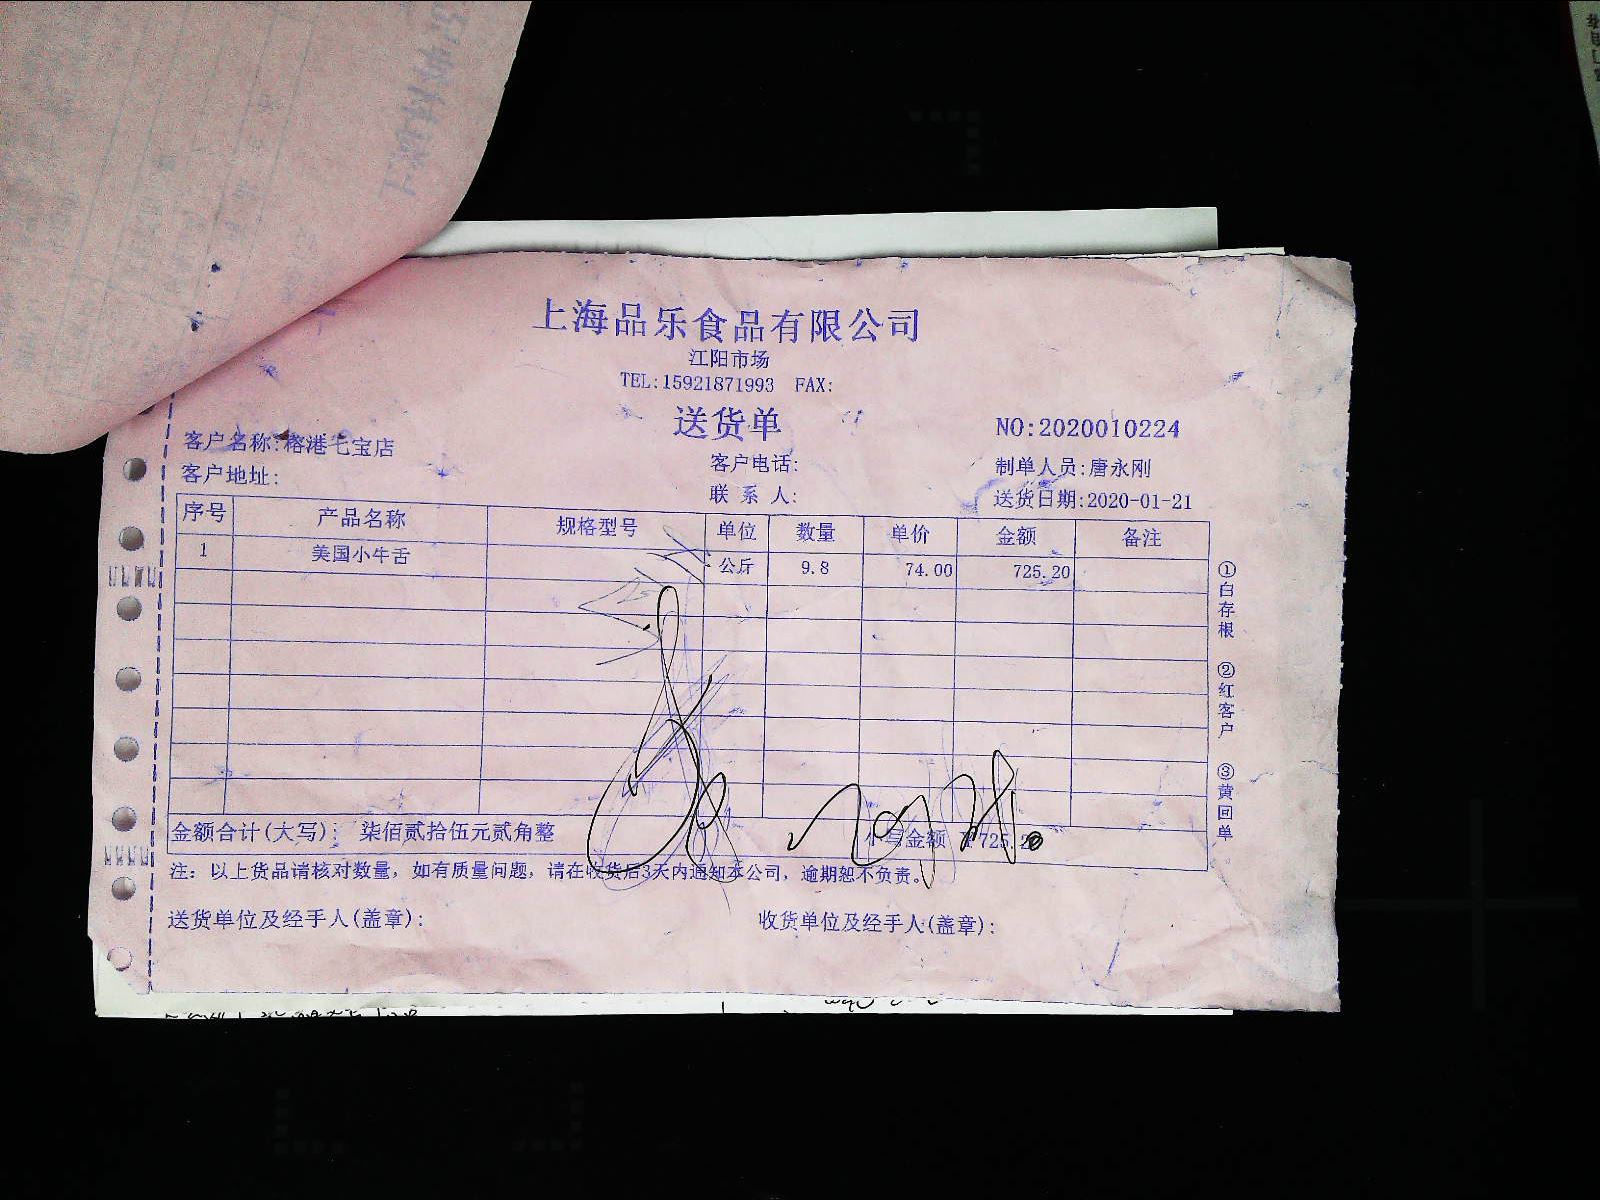 上海品乐食品有限公司
江阳市场
TEL:15921871993 FAX:
送货单
NO:2020010224
客户名称:榕港七宝店
客户电话:
制单人员:唐永刚
客户地址:
联 系 人:
送货日期:2020-01-21
序号 产品名称 规格型号 单位 数量 单价 金额 备注
1 美国小牛舌 公斤 9.8 74.00 725.20
金额合计(大写): 柒佰贰拾伍元贰角整 小写金额 ¥725.20
注: 以上货品请核对数量, 如有质量问题, 请在收货后3天内通知本公司, 逾期恕不负责。
送货单位及经手人(盖章): 收货单位及经手人(盖章):
①白存根 ②红客户 ③黄回单